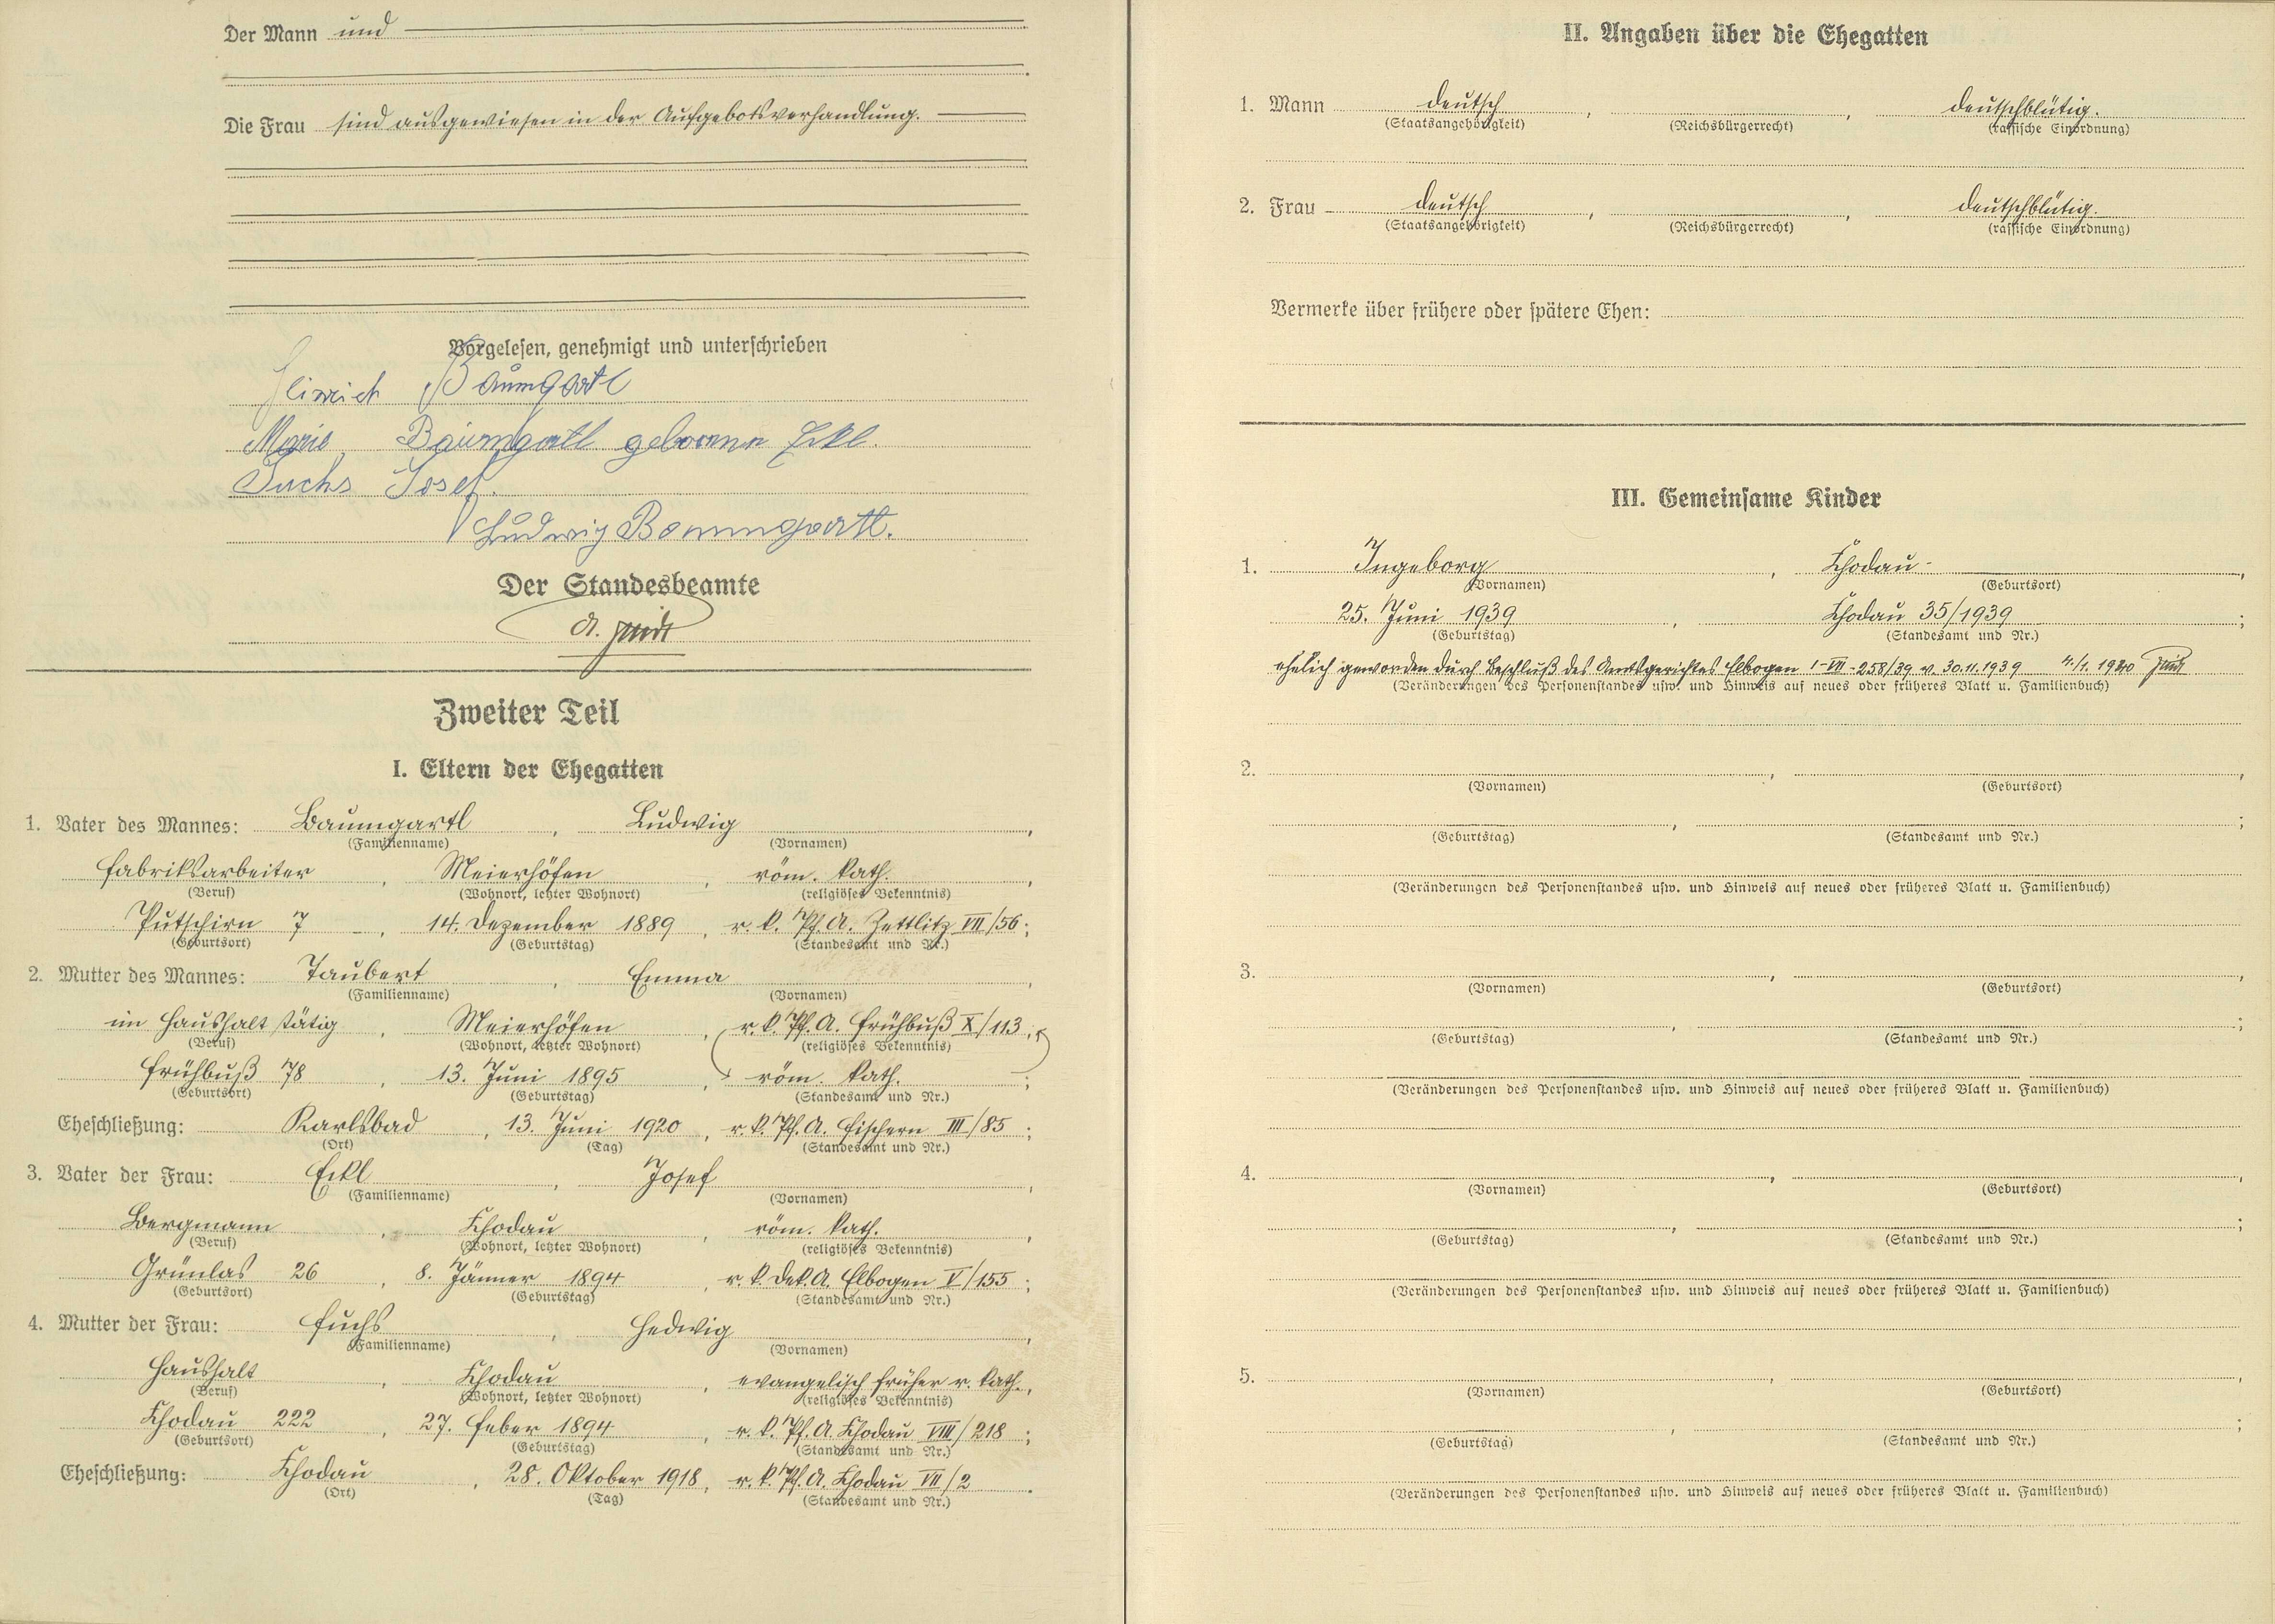 Der Mann und
Die Frau sind ausgewiesen in der Aufgebotsverhandlung.
Vorgelesen, genehmigt und unterschrieben
Heinrich Baumgartl
Marie Baumgartl geborene Eckl.
Fuchs Josef.
Ludwig Baumgartl.
Der Standesbeamte
Zweiter Teil
I. Eltern der Ehegatten
1. Vater des Mannes: Baumgartl, Ludwig,
(Familienname) (Vornamen)
Fabriksarbeiter, Meierhöfen, röm. kath.,
(Beruf) (Wohnort, letzter Wohnort) (religiöses Bekenntnis)
Putschirn 7, 14. Dezember 1889, r. k. Pf. A. Zettlitz VII/56;
(Geburtsort) (Geburtstag) (Standesamt und Nr.)
2. Mutter des Mannes: Taubert, Emma,
(Familienname) (Vornamen)
im Haushalt tätig, Meierhöfen, r. k. Pf. A. Frühbuß X/113,
(Beruf) (Wohnort, letzter Wohnort) (religiöses Bekenntnis)
Frühbuß 78, 13. Juni 1895, röm. kath.;
(Geburtsort) (Geburtstag) (Standesamt und Nr.)
Eheschließung: Karlsbad, 13. Juni 1920, r. k. Pf. A. Fischern III/85;
(Ort) (Tag) (Standesamt und Nr.)
3. Vater der Frau: Eckl, Josef,
(Familienname) (Vornamen)
Bergmann, Chodau, röm. kath.,
(Beruf) (Wohnort, letzter Wohnort) (religiöses Bekenntnis)
Grünlas 26, 8. Jänner 1894, r. k. Dek. A. Elbogen V/155;
(Geburtsort) (Geburtstag) (Standesamt und Nr.)
4. Mutter der Frau: Fuchs, Hedwig,
(Familienname) (Vornamen)
Haushalt, Chodau, evangelisch früher r. kath.,
(Beruf) (Wohnort, letzter Wohnort) (religiöses Bekenntnis)
Chodau 222, 27. Feber 1894, r. k. Pf. A. Chodau VIII/218;
(Geburtsort) (Geburtstag) (Standesamt und Nr.)
Eheschließung: Chodau, 28. Oktober 1918, r. k. Pf. A. Chodau VII/2.
(Ort) (Tag) (Standesamt und Nr.)
II. Angaben über die Ehegatten
1. Mann deutsch, , deutschblütig.
(Staatsangehörigkeit) (Reichsbürgerrecht) (rassische Einordnung)
2. Frau deutsch, , deutschblütig.
(Staatsangehörigkeit) (Reichsbürgerrecht) (rassische Einordnung)
Vermerke über frühere oder spätere Ehen:
III. Gemeinsame Kinder
1. Ingeborg, Chodau,
(Vornamen) (Geburtsort)
25. Juni 1939, Chodau 35/1939;
(Geburtstag) (Standesamt und Nr.)
ehelich geworden durch Beschluß des Amtsgerichtes Elbogen I-VII-258/39 v. 30.11.1939 4./1. 1940
(Veränderungen des Personenstandes usw. und Hinweis auf neues oder früheres Blatt u. Familienbuch)
2. , ,
(Vornamen) (Geburtsort)
, ;
(Geburtstag) (Standesamt und Nr.)
(Veränderungen des Personenstandes usw. und Hinweis auf neues oder früheres Blatt u. Familienbuch)
3. , ,
(Vornamen) (Geburtsort)
, ;
(Geburtstag) (Standesamt und Nr.)
(Veränderungen des Personenstandes usw. und Hinweis auf neues oder früheres Blatt u. Familienbuch)
4. , ,
(Vornamen) (Geburtsort)
, ;
(Geburtstag) (Standesamt und Nr.)
(Veränderungen des Personenstandes usw. und Hinweis auf neues oder früheres Blatt u. Familienbuch)
5. , ,
(Vornamen) (Geburtsort)
, ;
(Geburtstag) (Standesamt und Nr.)
(Veränderungen des Personenstandes usw. und Hinweis auf neues oder früheres Blatt u. Familienbuch)